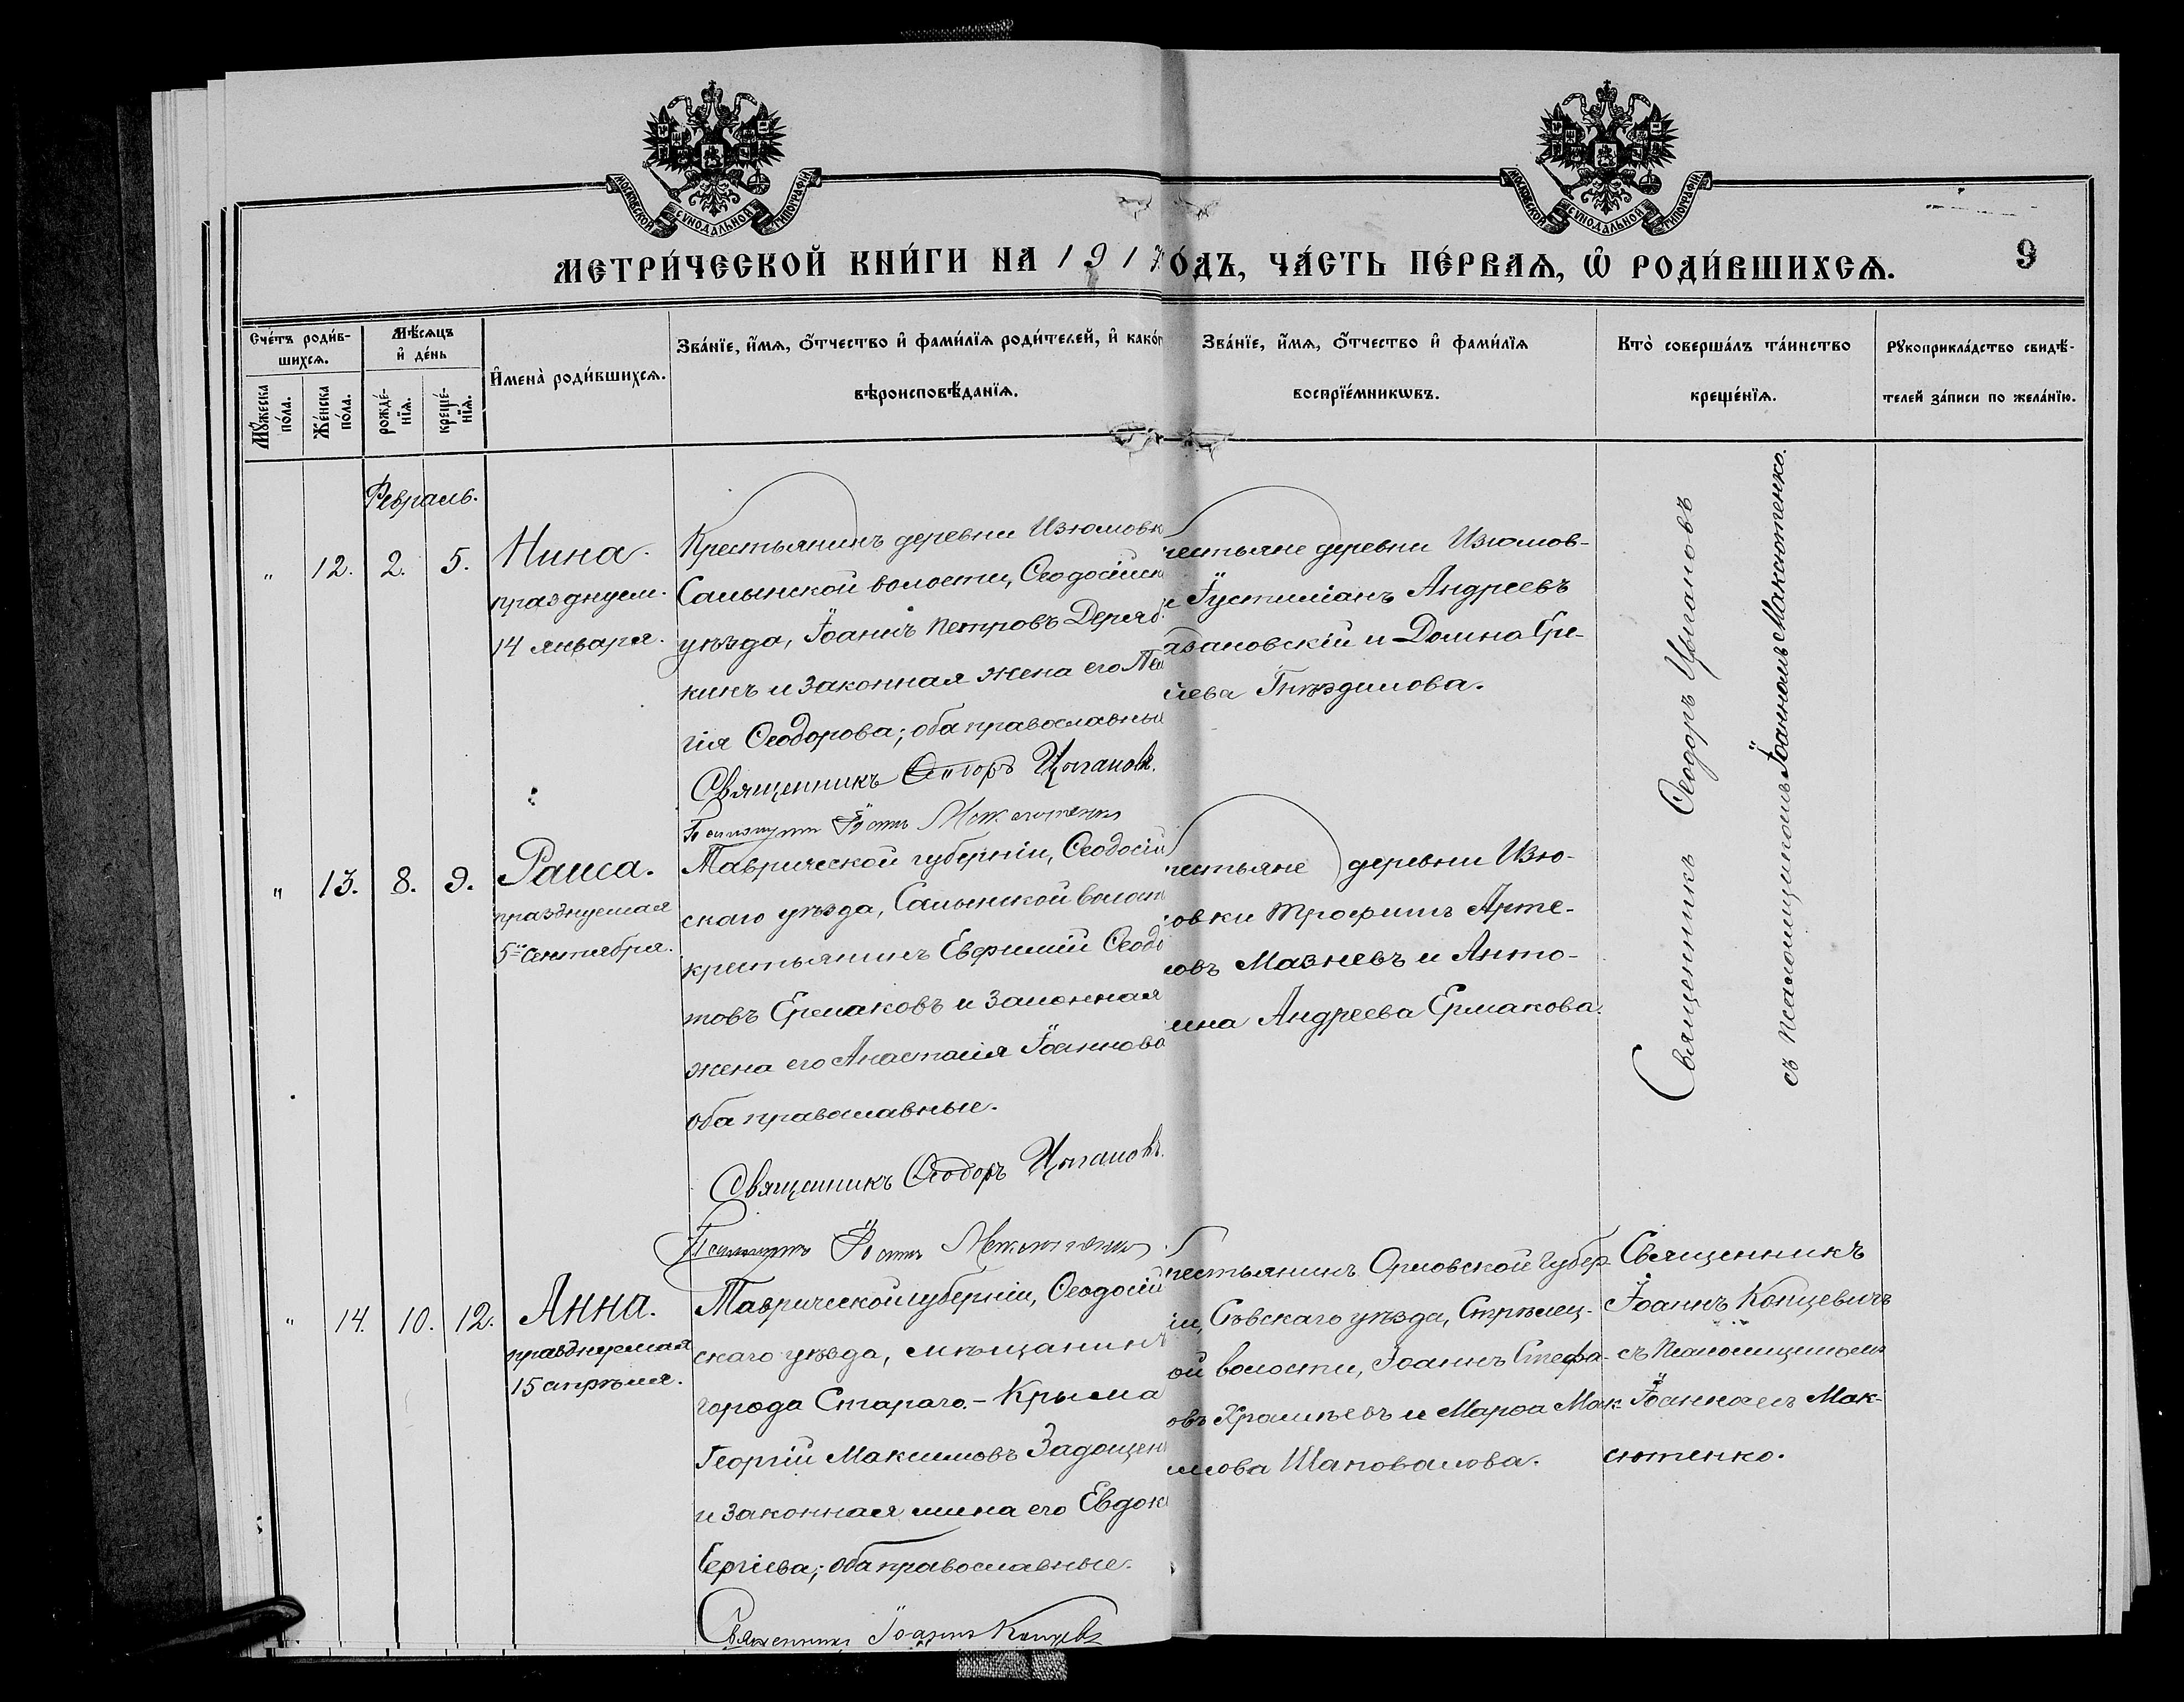 МОСКОВСКОЙ СѴНОДАЛЬНОЙ ТИПОГРАФІИ
МОСКОВСКОЙ СѴНОДАЛЬНОЙ ТИПОГРАФІИ
МЕТРИ́ЧЕСКОЙ КНИ́ГИ НА 1917
О́ДЪ, ЧА́СТЬ ПЕ́РВАѦ, Ѡ҆ РОДИ́ВШИХСѦ.
9
Сче́тъ роди́в-
шихсѧ.
Мꙋ́жеска
по́ла.
Же́нска
по́ла.
Мѣ́сѧцъ
и҆ де́нь
рожде́-
нїѧ.
креще́-
нїѧ.
И҆мена̀ роди́вшихсѧ.
Зва́нїе, и҆́мѧ, ѻ҆́тчество и҆ фами́лїѧ роди́телей, и҆ како́г
вѣроисповѣ́данїѧ.
Зва́нїе, и҆́мѧ, ѻ҆́тчество и҆ фами́лїѧ
воспрїе́мникѡвъ.
Кто̀ соверша́лъ та́инство
креще́нїѧ.
Рꙋкоприкла́дство свидѣ́-
телей за́писи по жела́нїю.
Февраль.
" 12. 2. 5.
Нина.
празднуем.
14 января.
Крестьянинъ деревни Изюмовк
Салынской волости, Ѳеодосійск
уѣзда, Іоаннъ Петровъ Деряб
кинъ и законная жена его Пела
гія Ѳеодорова; оба православны
Священникъ Ѳеодоръ Цыгановъ.
Псаломщикъ Іоаннъ Максютенко
рестьяне деревни Изюмов-
Іустиніанъ Андреевъ
азановскій и Домна Гре-
Гнѣздилова.
Священникъ Ѳеодоръ Цыгановъ
съ псаломщикомъ Іоанномъ Максютенко.
" 13. 8. 9.
Раиса.
празднуемая
5го сентября.
Таврической губерніи, Ѳеодосій
скаго уѣзда, Салынской волост
крестьянинъ Евфимій Ѳеодо
товъ Ермаковъ и законная
жена его Анастасія Іоаннова
оба православные.
Священникъ Ѳеодоръ Цыгановъ.
Псаломщикъ Іоаннъ Максютенко
рестьяне деревни Изю-
овки Трофимъ Арте-
овъ Мазневъ и Анто-
ина Андреева Ермакова.
" 14. 10. 12.
Анна.
празднуемая
15 апрѣля.
Таврической губерніи, Ѳеодосій
скаго уѣзда, мѣщанинъ
города Стараго-Крыма
Георгій Максимовъ Задощен
и законная жена его Евдок
Сергіева; оба православные.
Священникъ Іоаннъ Концев
рестьянинъ Орловской губер-
іи, Сѣвскаго уѣзда, Стрѣлец-
ой волости, Іоаннъ Стефа-
овъ Храмѣевъ и Марѳа Мак-
имова Шаповалова.
Священникъ
Іоаннъ Концевичъ
съ псаломщикомъ
Іоанномъ Мак-
сютенко.